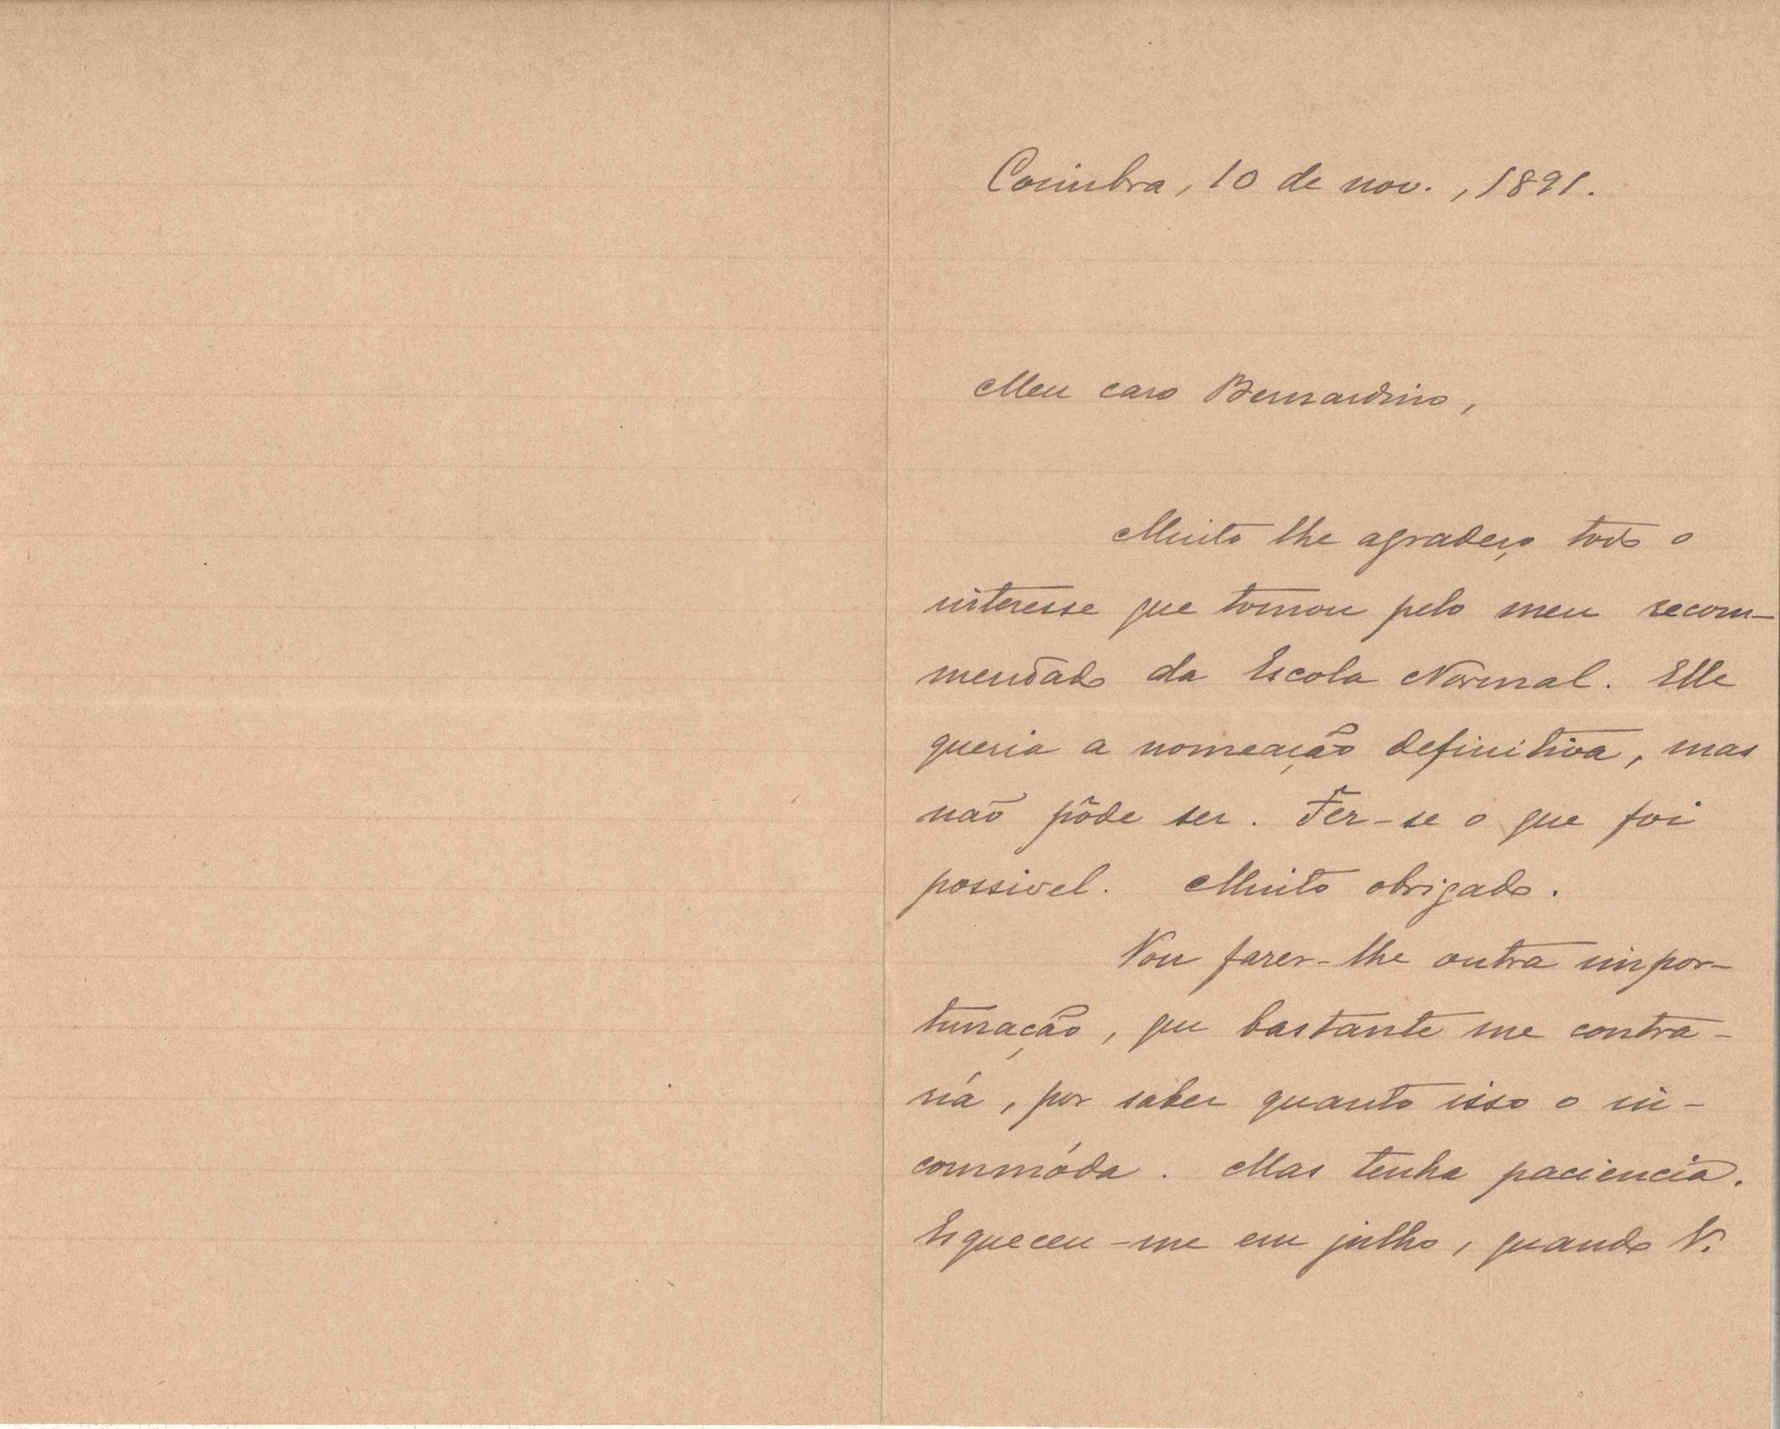 Coimbra, 10 de nov., 1891.
Meu caro Bernardino,
Muito lhe agradeço todo o
interesse que tomou pelo meu recom-
mendado da Escola Normal. Elle
queria a nomeação definitiva, mas
não pôde ser. Fez-se o que foi
possivel. Muito obrigado.
Vou fazer-lhe outra impor-
tunação, que bastante me contra-
ría, por saber quanto isso o in-
commóda. Mas tenha paciencia.
Esqueceu-me em julho, quando V.